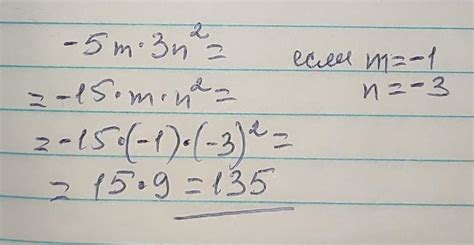 -5m·3n²= если m=-1
=-15·m·n²= n=-3
=-15·(-1)·(-3)²=
= 15·9=135